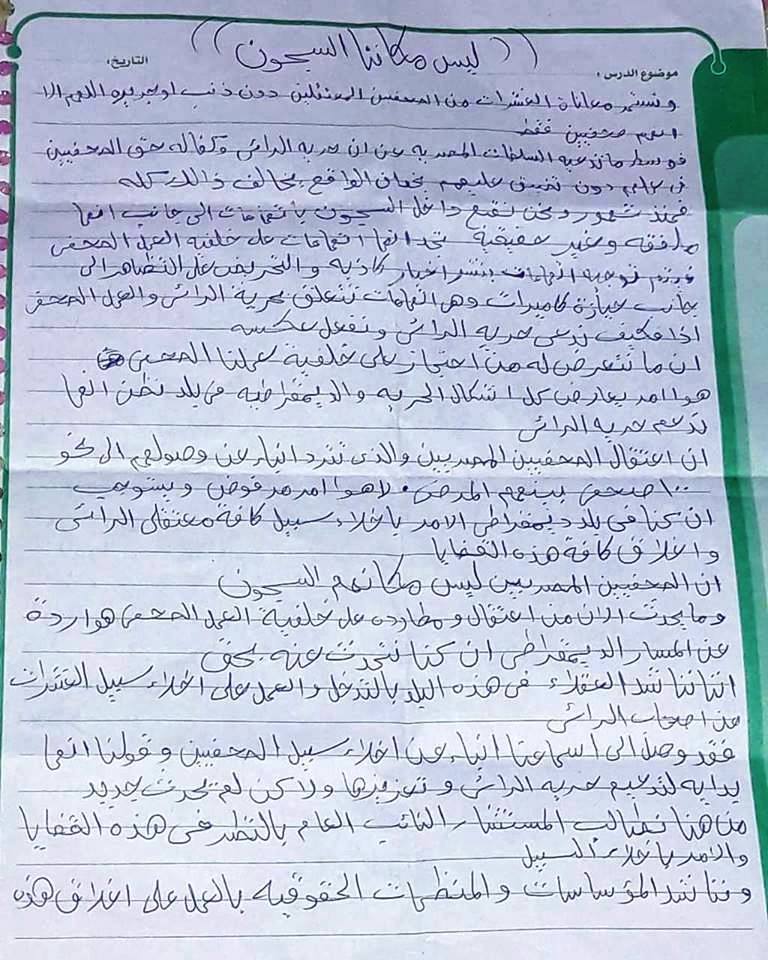 موضوع الدرس :
التاريخ:
(( ليس مكاننا السجون ))
وتستمر معاناة العشرات من الصحفيين المعتقلين دون ذنب او جريره اللهم الا
انهم صحفيين فقط
فوسط ما تدعيه السلطات المصريه عن ان حريه الرائى وكفاله حق الصحفيين
فى عملهم دون تضييق عليهم بخلاف الواقع يخالف ذالك كله
فمنذ شهور ونحن نقبع داخل السجون باتهامات الى جانب انها
ملفقه وغير حقيقية نجد انها اتهامات على خلفيه العمل الصحفى
فيتم توجيه اتهامات بنشر اخبار كاذبه والتحريض على التظاهر الى
جانب حيازة كاميرات وهى اتهامات تتعلق بحرية الرائى والعمل الصحفى
اذا فكيف ندعى حريه الرائى ونفعل عكسه
ان ما نتعرض له من احتجاز على خلفية عملنا الصحفى
هوا امر يعارض كل اشكال الحريه والديمقراطيه فى بلد نظن انها
تدعم حريه الرائى
ان اعتقال الصحفيين المصريين والذى تترد انباء عن وصولهم الى نحو
١٠٠ صحفى بينهم المرضى لاهوا امر مرفوض ويستوجب
ان كنا فى بلد ديمقراطى الامر باخلاء سبيل كافة معتقلى الرائى
واغلاق كافة هذه القضايا
ان الصحفيين المصريين ليس مكانهم السجون
وما يحدث الان من اعتقال ومطارده على خلفية العمل الصحفى هوا ردة
عن المسار الديمقراطى ان كنا نتحدث عنه بحق
اننا نناشد العقلاء فى هذه البلد بالتدخل والعمل على اخلاء سبيل العشرات
من اصحاب الرائى
فقد وصل الى اسماعنا انباء عن اخلاء سبيل الصحفيين وقولنا انها
بدايه لتدعيم حريه الرائى وتعزيزها ولاكن لم يحدث جديد
من هنا نطالب المستشار النائب العام بالنظر فى هذه القضايا
والامر باخلاء السبيل
ونناشد المؤساسات والمنظمات الحقوقيه بالعمل على اغلاق هذه